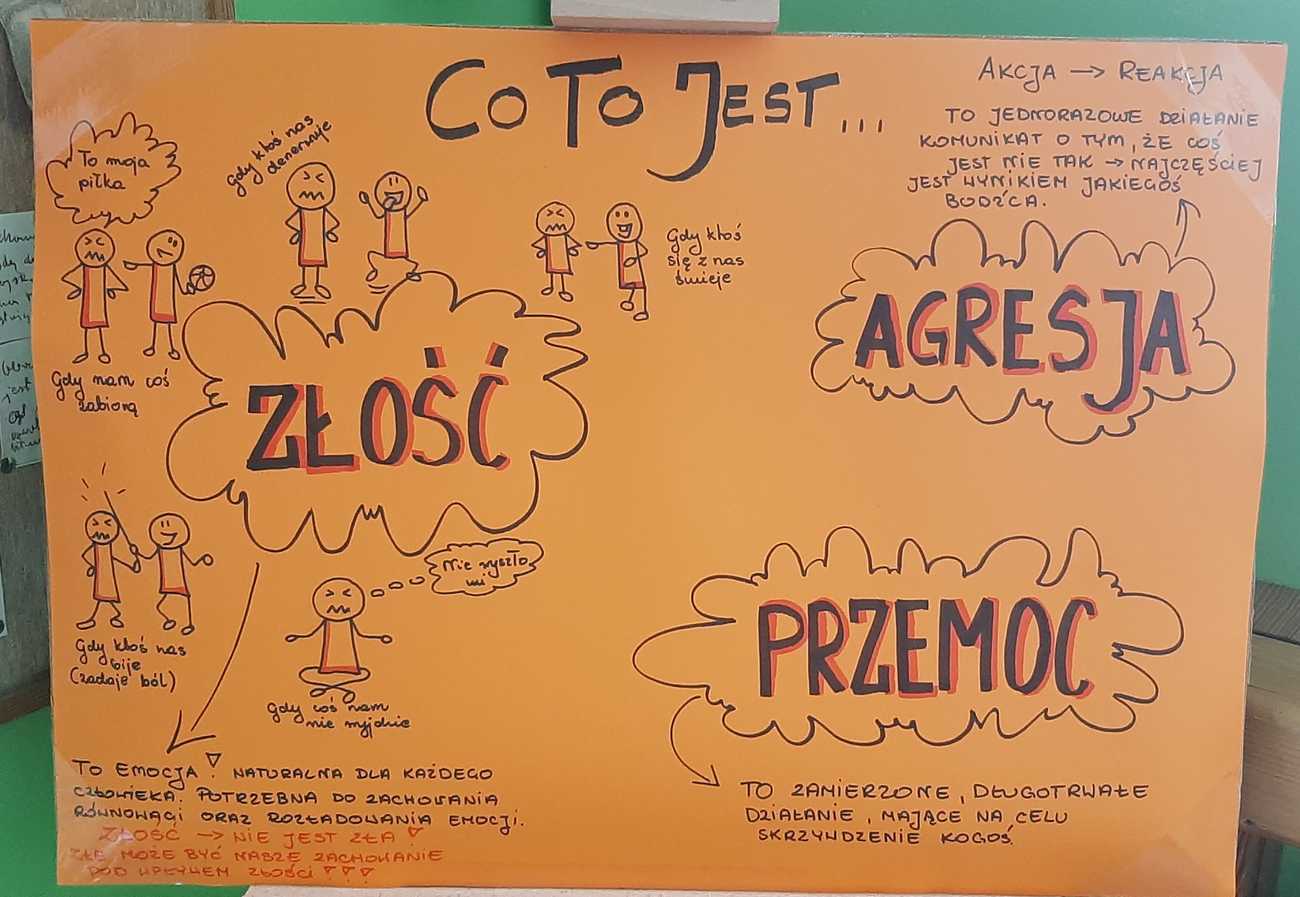 Co To Jest...
Akcja → Reakcja
To jednorazowe działanie
komunikat o tym, że coś
jest nie tak → najczęściej
jest wynikiem jakiegoś
bodźca.
AGRESJA
To moja
piłka
Gdy nam coś
zabiorą
Gdy ktoś nas
denerwuje
Gdy ktoś
się z nas
śmieje
ZŁOŚĆ
Gdy ktoś nas
bije
(zadaje ból)
Nie wyszło
mi
Gdy coś nam
nie wyjdzie
To emocja! Naturalna dla każdego
człowieka. Potrzebna do zachowania
równowagi oraz rozładowania emocji.
Złość → nie jest zła!
Złe może być nasze zachowanie
pod wpływem złości!!!
PRZEMOC
To zamierzone, długotrwałe
działanie, mające na celu
skrzywdzenie kogoś.